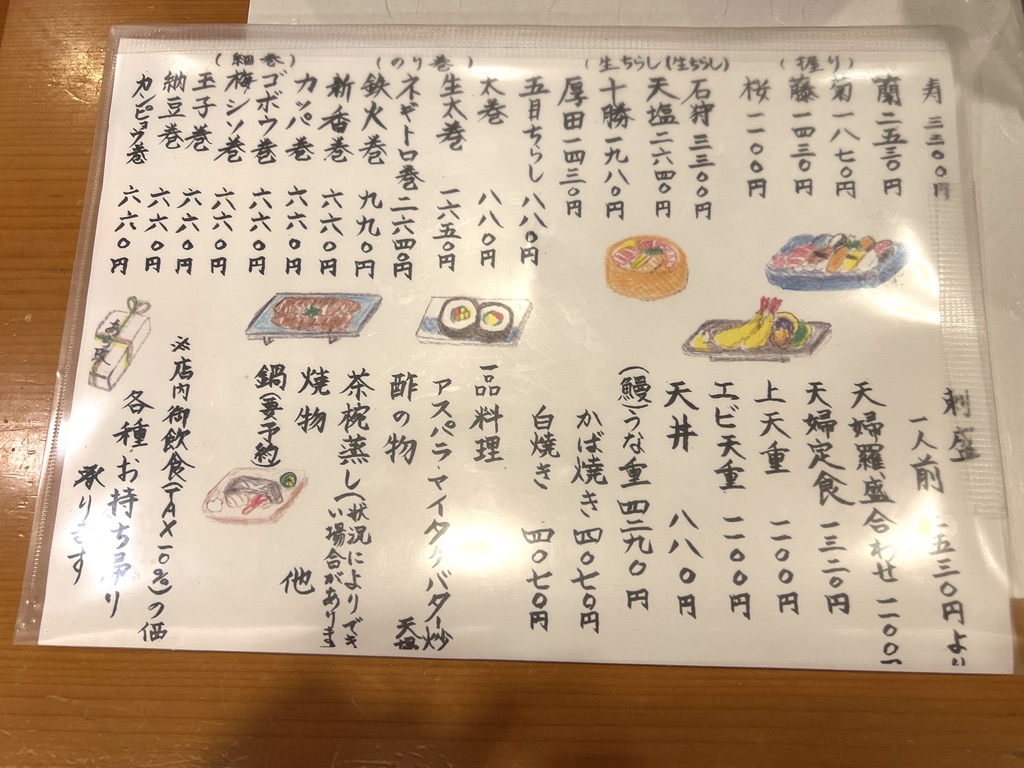 (握り)
寿 三三〇〇円
蘭 二五三〇円
菊 一八七〇円
藤 一四三〇円
桜 一一〇〇円
(生ちらし)(生ちらし)
石狩 三三〇〇円
天塩 二六四〇円
十勝 一九八〇円
厚田 一四三〇円
五目ちらし 八八〇円
(のり巻)
太巻 八八〇円
生太巻 一六五〇円
ネギトロ巻 二六四〇円
鉄火巻 九九〇円
新香巻 六六〇円
カッパ巻 六六〇円
(細巻)
ゴボウ巻 六六〇円
梅シソ巻 六六〇円
玉子巻 六六〇円
納豆巻 六六〇円
カンピョウ巻 六六〇円
刺盛
一人前 一五三〇円より
天婦羅盛合わせ 一一〇〇
天婦定食 一三二〇円
上天重 一一〇〇円
エビ天重 一一〇〇円
天丼 八八〇円
(鰻)うな重 四二九〇円
かば焼き 四〇七〇円
白焼き 四〇七〇円
一品料理
アスパラ・マイタケバター炒
天塩
酢の物
茶椀蒸し(状況によりでき
い場合がありま
焼物
他
鍋(要予約)
※店内御飲食(TAX10%)の価
各種・お持ち帰り
承ります